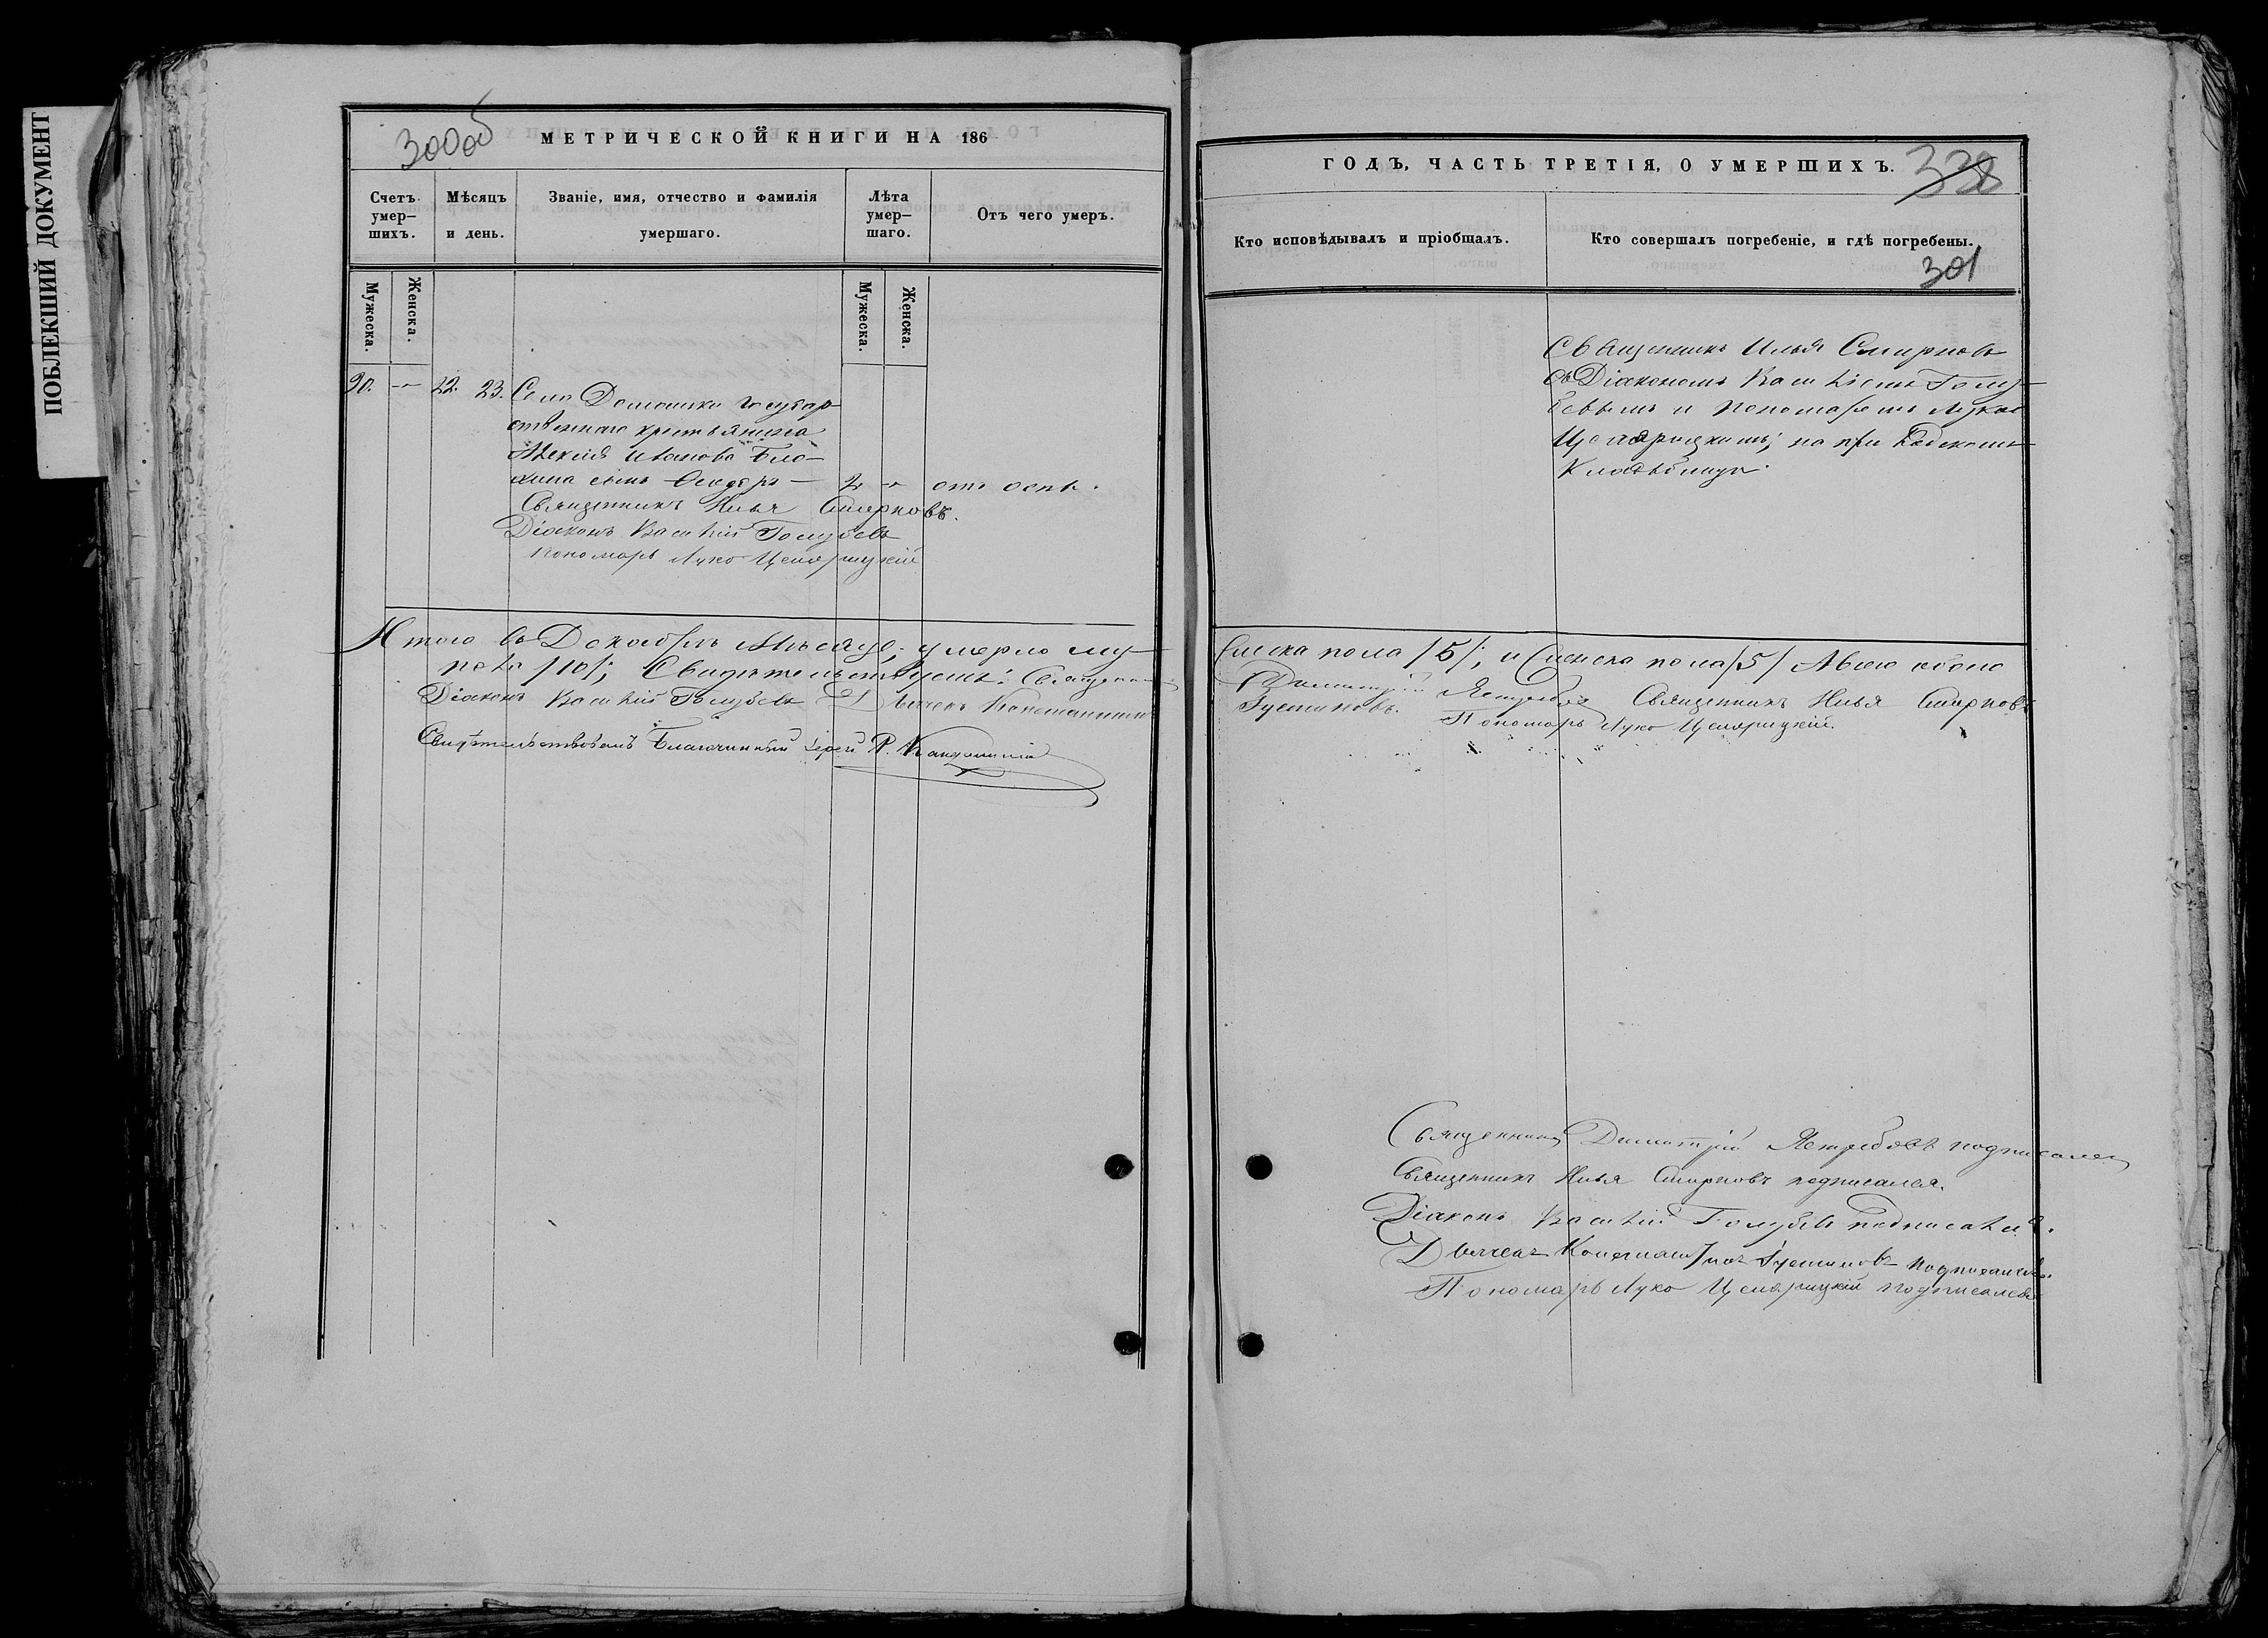 ПОБЛЕКШИЙ ДОКУМЕНТ
300об
МЕТРИЧЕСКОЙ КНИГИ НА 186
Счетъ умер-шихъ.
Мѣсяцъ и день.
Званіе, имя, отчество и фамилія умершаго.
Лѣта умер-шаго.
Отъ чего умеръ.
Мужеска.
Женска.
Мужеска.
Женска.
90. — 22. 23. Села Домашки государ-
ственнаго крестьянина
Алексія Иванова Бло-
хина сынъ Ѳеодоръ — 2 — отъ оспы.
Священникъ Илья Смирновъ.
Діаконъ Василій Голубевъ
Пономарь Лука
Итого въ Декабрѣ мѣсяцѣ; умерло му-
пола /10/; Свидѣтельствуемъ: Священникъ
Діаконъ Василій Голубевъ Дьячекъ Константинъ
Свидѣтельствовалъ Благочинный Іерей
ГОДЪ, ЧАСТЬ ТРЕТІЯ, О УМЕРШИХЪ.
338
Кто исповѣдывалъ и пріобщалъ.
Кто совершалъ погребеніе, и гдѣ погребены.
301
Священникъ Илья Смирновъ
съ Діакономъ Василіемъ Голу-
бевымъ и пономаремъ Лукою
на приходскомъ
кладбищѣ.
жеска пола /5/; и женска пола /5/ Всего обоего
Димитрій Ястребовъ Священникъ Илья Смирновъ
Густиновъ. Пономарь Лука
Священникъ Димитрій Ястребовъ подписался
Священникъ Илья Смирновъ подписался.
Діаконъ Василій Голубевъ подписался.
Дьячекъ Константинъ Густиновъ подписался.
Пономарь Лука подписался